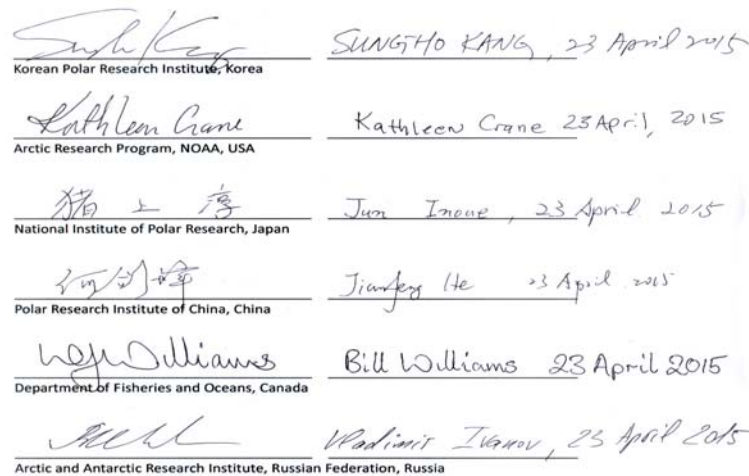 SUNGHO KANG, 23 April 2015
Korean Polar Research Institute, Korea
Kathleen Crane Kathleen Crane 23 April, 2015
Arctic Research Program, NOAA, USA
猪上 淳 Jun Inoue, 23 April 2015
National Institute of Polar Research, Japan
何剑峰 Jianfeng He 23 April 2015
Polar Research Institute of China, China
Williams Bill Williams 23 April 2015
Department of Fisheries and Oceans, Canada
Vladimir Ivanov, 23 April 2015
Arctic and Antarctic Research Institute, Russian Federation, Russia